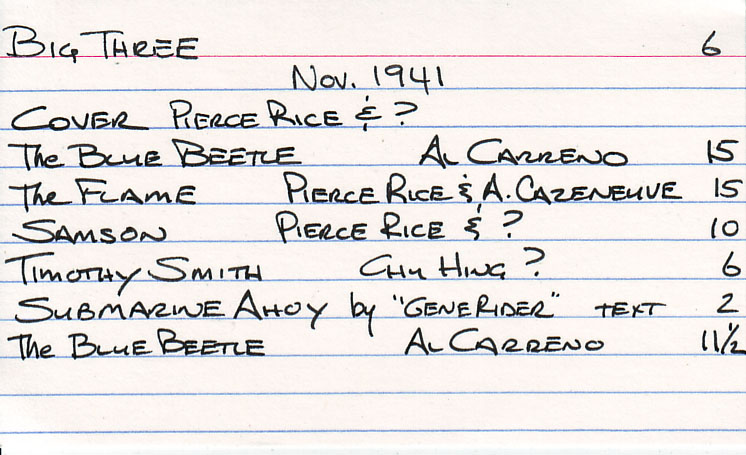 BIG THREE 6
Nov. 1941
COVER PIERCE RICE & ?
The BLUE BEETLE AL CARRENO 15
The FLAME PIERCE RICE & A. CAZENEUVE 15
SAMSON PIERCE RICE & ? 10
TIMOTHY SMITH CHU HING ? 6
SUBMARINE AHOY by "GENE RIDER" TEXT 2
The BLUE BEETLE AL CARRENO 11 1/2